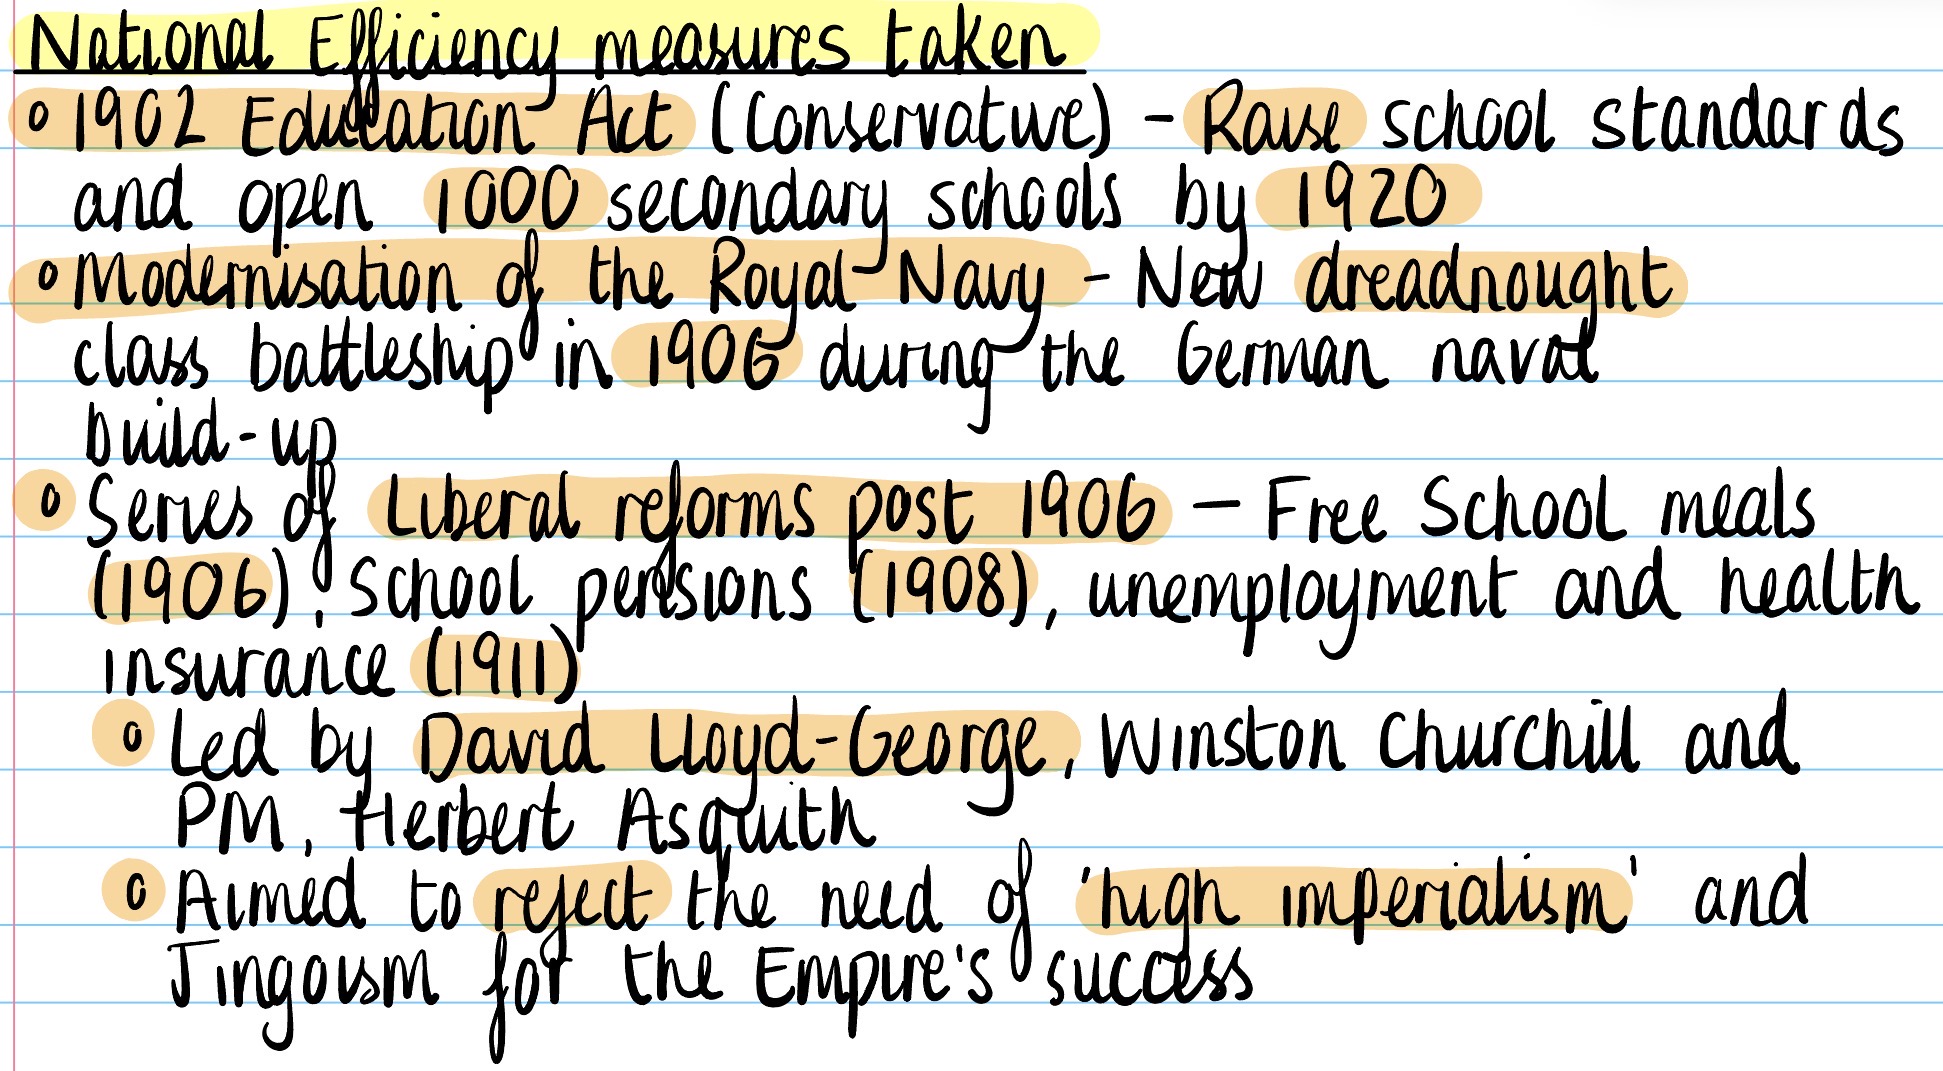 National Efficiency measures taken
o 1902 Education Act (Conservative) - Raise school standards
and open 1000 secondary schools by 1920
o Modernisation of the Royal Navy - New dreadnought
class battleship in 1906 during the German naval
build-up
o Series of Liberal reforms post 1906 - Free School meals
(1906), School pensions (1908), unemployment and health
insurance (1911)
o Led by David Lloyd-George, Winston Churchill and
PM, Herbert Asquith
o Aimed to reject the need of 'high imperialism' and
Jingoism for the Empire's success